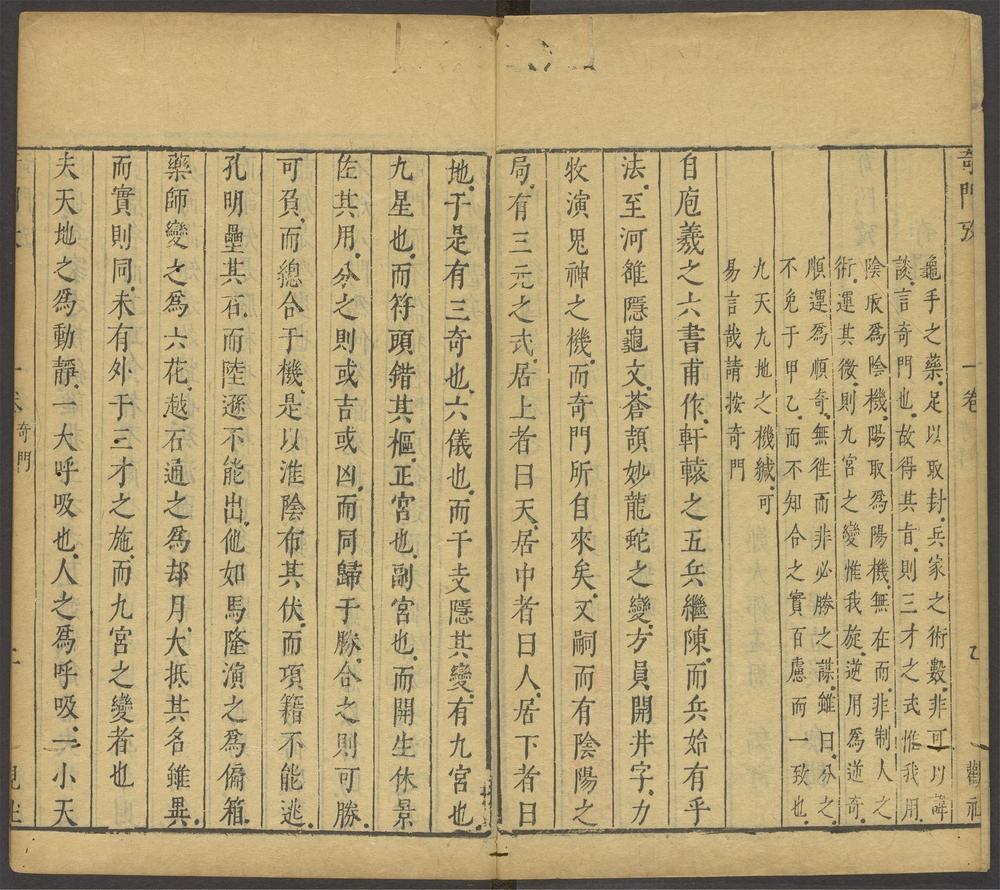 奇門攷 一卷 乙
龜手之藥足以取封兵家之術數非可以諱
談言奇門也故得其旨則三才之式惟我用
陰取爲陰機陽取爲陽機無在而非制人之
術運其微則九宮之變惟我旋逆用爲逆奇
順運爲順奇無徃而非必勝之謀雖曰分之
不免于甲乙而不知合之實百慮而一致也
九天九地之機緘可
易言哉請按奇門
自庖羲之六書甫作軒轅之五兵繼陳而兵始有乎
法至河雒隱龜文蒼頡妙龍蛇之變方員開井字力
牧演鬼神之機而奇門所自來矣又嗣而有陰陽之
局有三元之式居上者曰天居中者曰人居下者曰
地于是有三奇也六儀也而干支隱其變有九宮也
九星也而符頭錯其樞正宮也副宮也而開生休景
佐其用分之則或吉或凶而同歸于勝合之則可勝
可負而總合于機是以淮陰布其伏而項籍不能逃
孔明壘其石而陸遜不能出他如馬隆演之爲偏箱
藥師變之爲六花越石通之爲却月大抵其名雖異
而實則同未有外于三才之施而九宮之變者也
夫天地之爲動靜一大呼吸也人之爲呼吸一小天
奇門